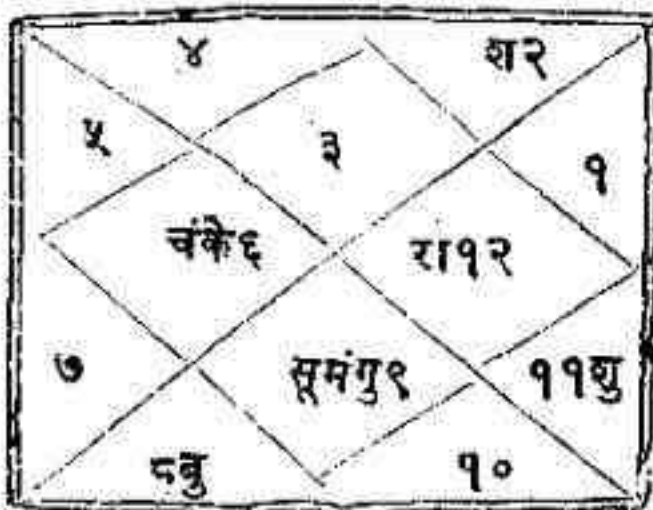 ४ श२
५ ३ १
चंके६ रा१२
७ सूमंगु९ ११शु
८बु १०